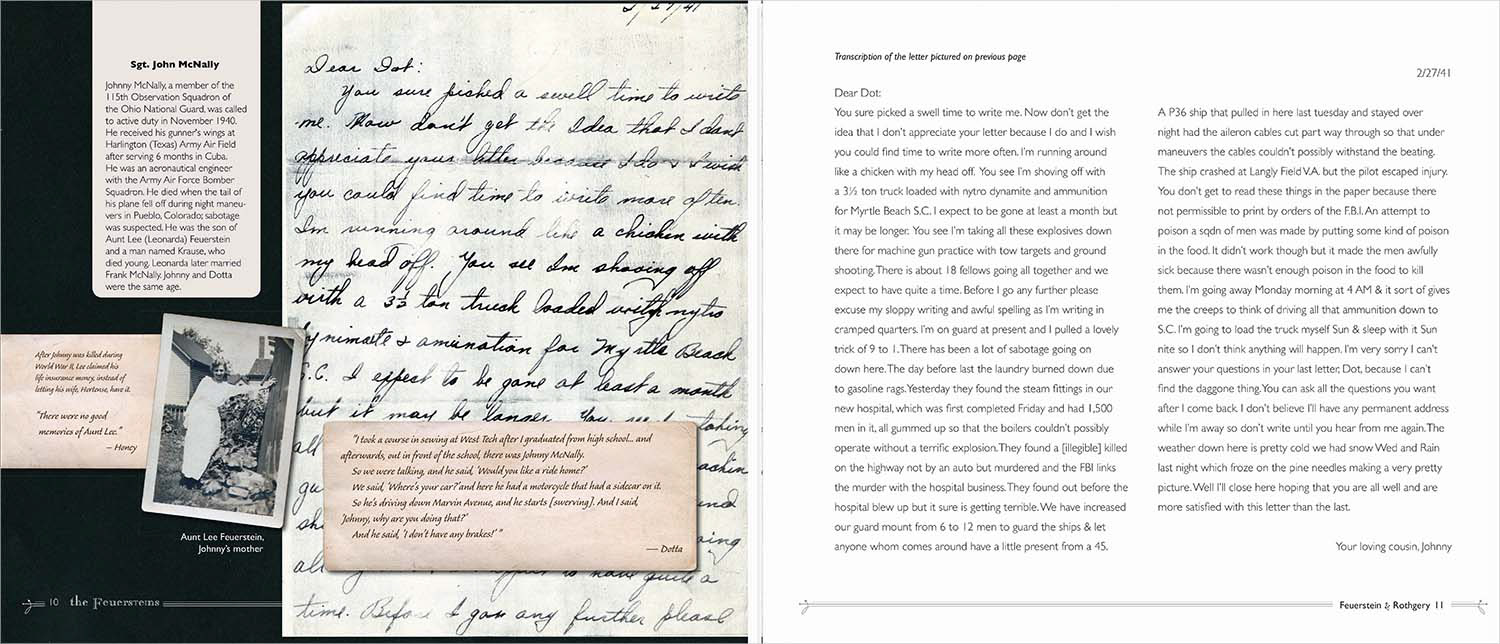 Sgt. John McNally
Johnny McNally, a member of the
115th Observation Squadron of
the Ohio National Guard, was called
to active duty in November 1940.
He received his gunner's wings at
Harlington (Texas) Army Air Field
after serving 6 months in Cuba.
He was an aeronautical engineer
with the Army Air Force Bomber
Squadron. He died when the tail of
his plane fell off during night maneu-
vers in Pueblo, Colorado; sabotage
was suspected. He was the son of
Aunt Lee (Leonarda) Feuerstein
and a man named Krause, who
died young. Leonarda later married
Frank McNally. Johnny and Dotta
were the same age.
After Johnny was killed during
World War II, Lee claimed his
life insurance money, instead of
letting his wife, Hortense, have it.
"There were no good
memories of Aunt Lee."
— Honey
Aunt Lee Feuerstein,
Johnny's mother
10 the Feuersteins
2/27/41
Dear Dot:
You sure picked a swell time to write
me. Now don't get the Idea that I dont
appreciate your letter because I do & I wish
you could find time to write more often.
Im running around like a chicken with
my head off. You see Im shoving off
with a 3½ ton truck loaded with nytro
dynimate & amunation for Myrtle Beach
S.C. I expect to be gone at least a month
but it may be longer. You see I taking
all
gu
sh
all
time. Before I gow any further please
"I took a course in sewing at West Tech after I graduated from high school... and
afterwards, out in front of the school, there was Johnny McNally.
So we were talking, and he said, 'Would you like a ride home?'
We said, 'Where's your car?' and here he had a motorcycle that had a sidecar on it.
So he's driving down Marvin Avenue, and he starts [swerving]. And I said,
'Johnny, why are you doing that?'
And he said, 'I don't have any brakes!' "
— Dotta
Transcription of the letter pictured on previous page
2/27/41
Dear Dot:
You sure picked a swell time to write me. Now don't get the
idea that I don't appreciate your letter because I do and I wish
you could find time to write more often. I'm running around
like a chicken with my head off. You see I'm shoving off with
a 3½ ton truck loaded with nytro dynamite and ammunition
for Myrtle Beach S.C. I expect to be gone at least a month but
it may be longer. You see I'm taking all these explosives down
there for machine gun practice with tow targets and ground
shooting. There is about 18 fellows going all together and we
expect to have quite a time. Before I go any further please
excuse my sloppy writing and awful spelling as I'm writing in
cramped quarters. I'm on guard at present and I pulled a lovely
trick of 9 to 1. There has been a lot of sabotage going on
down here. The day before last the laundry burned down due
to gasoline rags. Yesterday they found the steam fittings in our
new hospital, which was first completed Friday and had 1,500
men in it, all gummed up so that the boilers couldn't possibly
operate without a terrific explosion. They found a [illegible] killed
on the highway not by an auto but murdered and the FBI links
the murder with the hospital business. They found out before the
hospital blew up but it sure is getting terrible. We have increased
our guard mount from 6 to 12 men to guard the ships & let
anyone whom comes around have a little present from a 45.
A P36 ship that pulled in here last tuesday and stayed over
night had the aileron cables cut part way through so that under
maneuvers the cables couldn't possibly withstand the beating.
The ship crashed at Langly Field V.A. but the pilot escaped injury.
You don't get to read these things in the paper because there
not permissible to print by orders of the F.B.I. An attempt to
poison a sqdn of men was made by putting some kind of poison
in the food. It didn't work though but it made the men awfully
sick because there wasn't enough poison in the food to kill
them. I'm going away Monday morning at 4 AM & it sort of gives
me the creeps to think of driving all that ammunition down to
S.C. I'm going to load the truck myself Sun & sleep with it Sun
nite so I don't think anything will happen. I'm very sorry I can't
answer your questions in your last letter, Dot, because I can't
find the daggone thing. You can ask all the questions you want
after I come back. I don't believe I'll have any permanent address
while I'm away so don't write until you hear from me again. The
weather down here is pretty cold we had snow Wed and Rain
last night which froze on the pine needles making a very pretty
picture. Well I'll close here hoping that you are all well and are
more satisfied with this letter than the last.
Your loving cousin, Johnny
Feuerstein & Rothgery 11